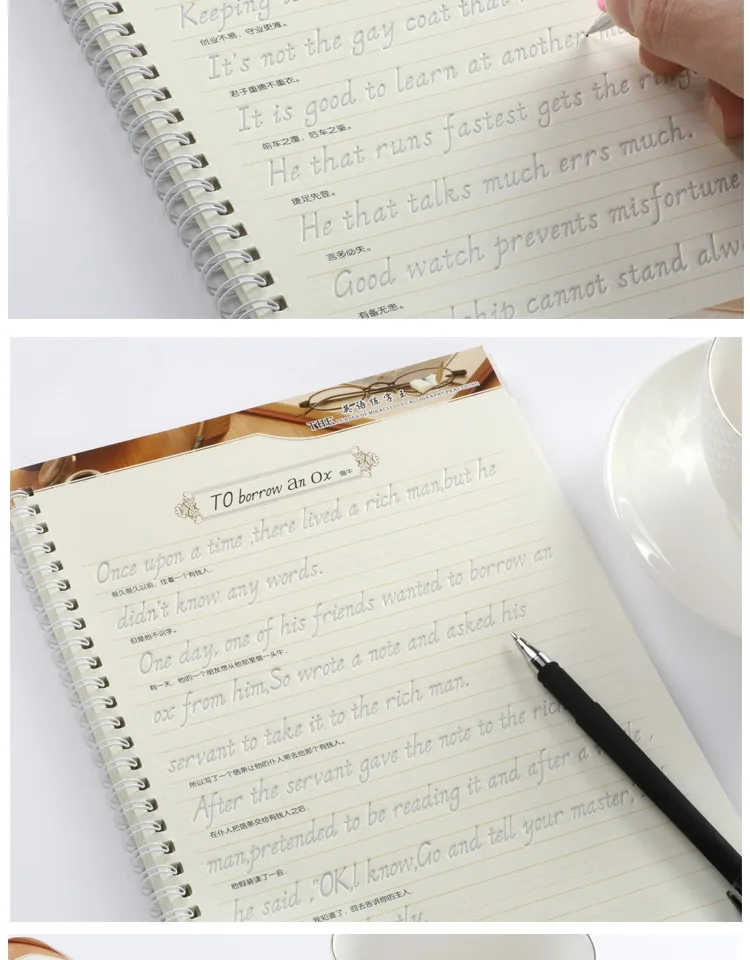 Keeping
创业不易，守业更难。
It's not the gay coat that
君子重德不重衣。
It is good to learn at another
前车之覆，后车之鉴。
He that runs fastest gets the ring.
捷足先登。
He that talks much errs much.
言多必失。
Good watch prevents misfortune
有备无患。
cannot stand
英语练字王
THE LEADER OF MIRACULOUS CALLIGRAPHY PRACTICING
TO borrow an Ox 借牛
Once upon a time ,there lived a rich man,but he
很久很久以前，住着一个有钱人，
didn't know any words.
但是他不识字。
One day, one of his friends wanted to borrow an
有一天，他的一个朋友想从他那里借一头牛，
ox from him,So wrote a note and asked his
servant to take it to the rich man.
所以写了一个信条让他的仆人带去给那个有钱人。
After the servant gave the note to the rich
在仆人把信条交给有钱人之后，
man,pretended to be reading it and after a while ,
他假装读了一会，
he said ,"OK,I know,Go and tell your master,
我知道了，回去告诉你的主人，